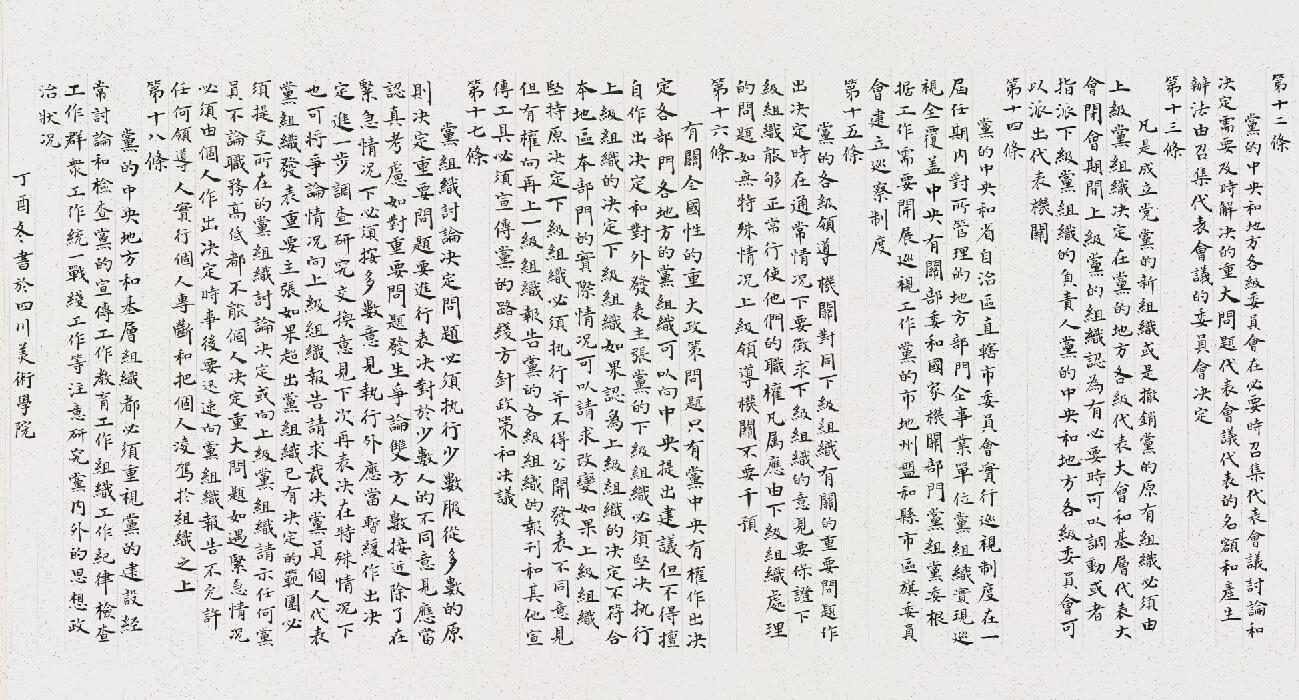 第十二條
黨的中央和地方各級委員會在必要時召集代表會議討論和
決定需要及時解決的重大問題代表會議代表的名額和產生
辦法由召集代表會議的委員會決定
第十三條
凡是成立党黨的新組織或是撤銷黨的原有組織必須由
上級黨組織決定在黨的地方各級代表大會和基層代表大
會閉會期間上級黨的組織認為有必要時可以調動或者
指派下級黨組織的負責人黨的中央和地方各級委員會可
以派出代表機關
第十四條
黨的中央和省自治區直轄市委員會實行巡視制度在一
屆任期內對所管理的地方部門企事業單位黨組織實現巡
視全覆盖中央有關部委和國家機關部門黨組黨委根
据工作需要開展巡視工作黨的市地州盟和縣市區旗委員
會建立巡察制度
第十五條
黨的各級領導機關對同下級組織有關的重要問題作
出决定時在通常情况下要徵求下級組織的意見要保證下
級組織能够正常行使他們的職權凡属應由下級組織處理
的問題如無特殊情况上級領導機關不要干預
第十六條
有關全國性的重大政策問題只有黨中央有權作出决
定各部門各地方的黨組織可以向中央提出建議但不得擅
自作出决定和對外發表主張黨的下級組織必須堅决执行
上級組織的决定下級組織如果認為上級組織的决定不符合
本地區本部門的實際情况可以請求改變如果上級組織
堅持原决定下級組織必須执行并不得公開發表不同意見
但有權向再上一級組織報告黨的各級組織的報刊和其他宣
傳工具必須宣傳黨的路綫方針政策和决議
第十七條
黨組織討論决定問題必須执行少數服從多數的原
則决定重要問題要進行表决對於少數人的不同意見應當
認真考慮如對重要問題發生爭論雙方人數接近除了在
緊急情况下必須按多數意見執行外應當暫緩作出决
定進一步調查研究交換意見下次再表决在特殊情况下
也可將爭論情况向上級組織報告請求裁决黨員個人代表
黨組織發表重要主張如果超出黨組織已有决定的範圍必
須提交所在的黨組織討論决定或向上級黨組織請示任何黨
員不論職務高低都不能個人决定重大問題如遇緊急情况
必須由個人作出决定時事後要迅速向黨組織報告不允許
任何領導人實行個人專斷和把個人凌駕於組織之上
第十八條
黨的中央地方和基層組織都必須重視黨的建設經
常討論和檢查黨的宣傳工作教育工作組織工作紀律檢查
工作群衆工作統一戰綫工作等注意研究黨內外的思想政
治狀况
丁酉冬書於四川美術學院